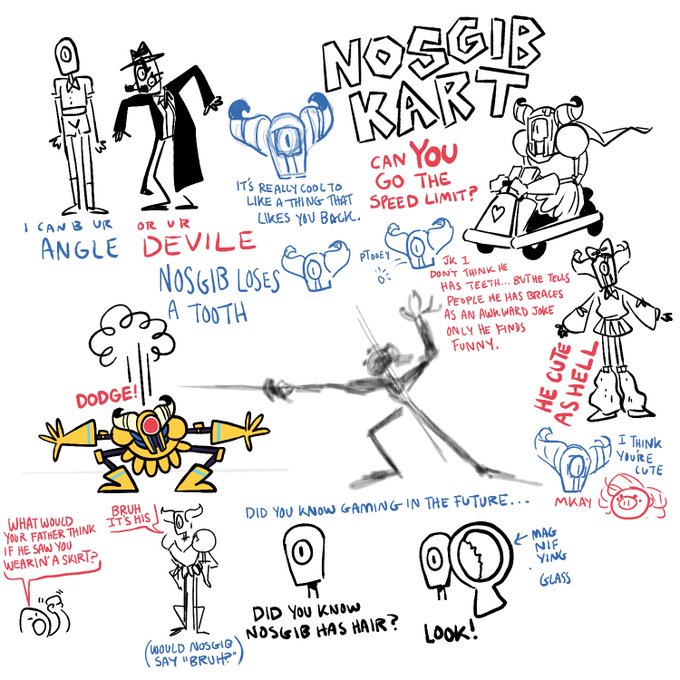 NOSGIB
KART
I CAN B UR
ANGLE
OR UR
DEVILE
IT'S REALLY COOL TO
LIKE A THING THAT
LIKES YOU BACK.
CAN YOU
GO THE
SPEED LIMIT?
NOSGIB LOSES
A TOOTH
PTOOEY
JK I
DON'T THINK HE
HAS TEETH... BUT HE TELLS
PEOPLE HE HAS BRACES
AS AN AWKWARD JOKE
ONLY HE FINDS
FUNNY.
DODGE!
HE CUTE
AS HELL
I THINK
YOU'RE
CUTE
MKAY
WHAT WOULD
YOUR FATHER THINK
IF HE SAW YOU
WEARIN' A SKIRT?
BRUH
IT'S HIS
(WOULD NOSGIB
SAY "BRUH?")
DID YOU KNOW GAMING IN THE FUTURE...
DID YOU KNOW
NOSGIB HAS HAIR?
LOOK!
MAG
NIF
YING
GLASS